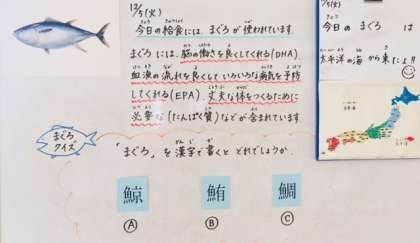 12/5(火)
今日の給食には、まぐろが使われています。
まぐろには、脳の働きを良くしてくれる(DHA)、
血液の流れを良くしていろいろな病気を予防
してくれる(EPA)、丈夫な体をつくるために
必要な(たんぱく質)などが含まれています。
まぐろ
クイズ
「まぐろ」を漢字で書くとどれでしょうか。
鯨
鮪
鯛
A
B
C
12/5(火)
今日の まぐろ は
太平洋の海から来たよ!!